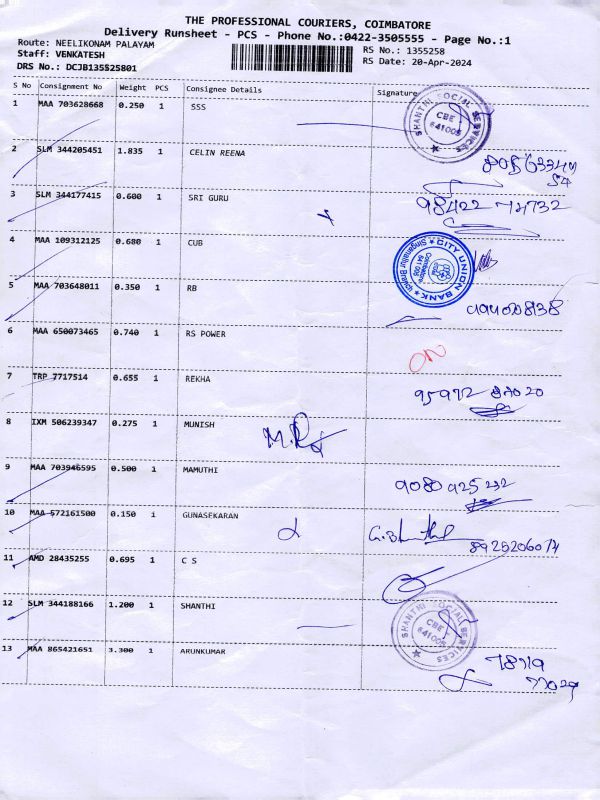 THE PROFESSIONAL COURIERS, COIMBATORE
Delivery Runsheet - PCS - Phone No.:0422-3505555 - Page No.:1
Route: NEELIKONAM PALAYAM
RS No.: 1355258
Staff: VENKATESH
RS Date: 20-Apr-2024
DRS No.: DCJB135525801
S No Consignment No Weight PCS Consignee Details Signature
1 MAA 703628668 0.250 1 SSS
SHANTHI SOCIAL SERVICES CBE 641005
2 SLM 344205451 1.835 1 CELIN REENA
3 SLM 344177415 0.600 1 SRI GURU
98422 74732
4 MAA 109312125 0.680 1 CUB
CITY UNION BANK
5 MAA 703648011 0.350 1 RB
6 MAA 650073465 0.740 1 RS POWER
7 TRP 7717514 0.655 1 REKHA
95972 87020
8 IXM 506239347 0.275 1 MUNISH
9 MAA 703946595 0.500 1 MAMUTHI
9080 925 232
10 MAA 572161500 0.150 1 GUNASEKARAN
8925206074
11 AMD 28435255 0.695 1 C S
12 SLM 344188166 1.200 1 SHANTHI
SHANTHI SOCIAL SERVICES CBE 641005
13 MAA 865421651 3.300 1 ARUNKUMAR